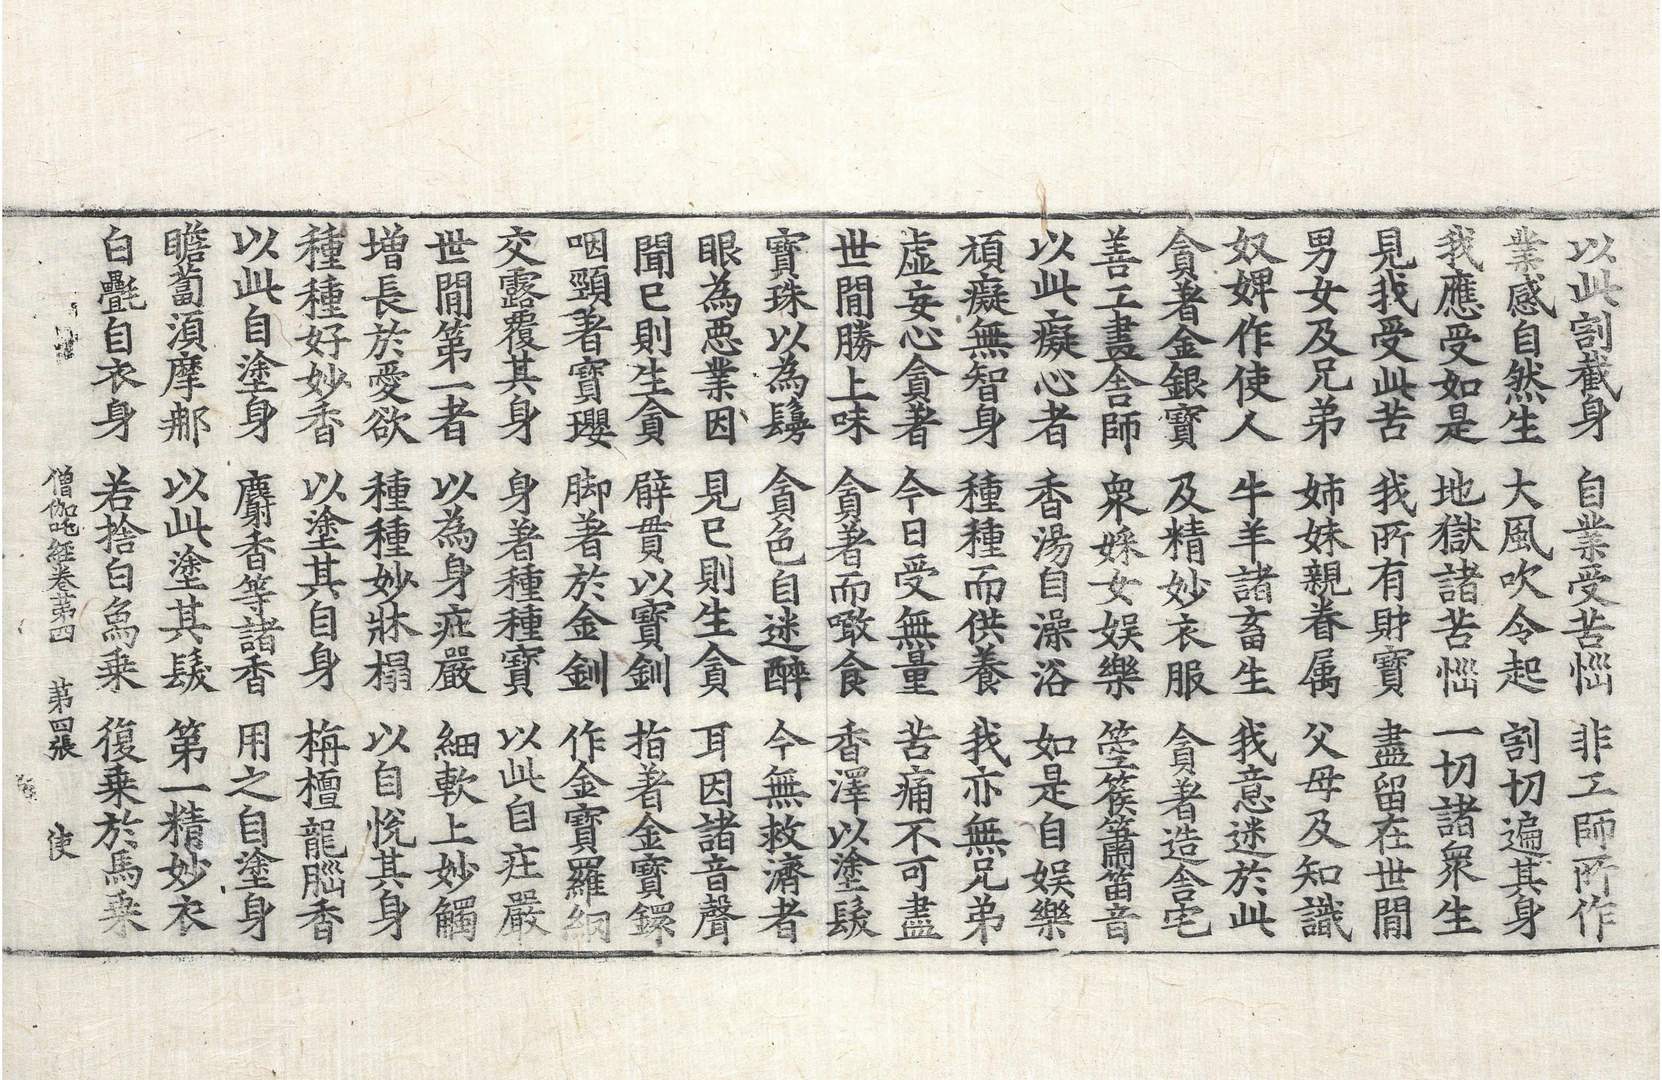 以此割截身　自業受苦惱　非工師所作
業感自然生　大風吹令起　割切遍其身
我應受如是　地獄諸苦惱　一切諸衆生
見我受此苦　我所有財寶　盡留在世間
男女及兄弟　姉妹親眷属　父母及知識
奴婢作使人　牛羊諸畜生　我意迷於此
貪著金銀寶　及精妙衣服　貪著造舍宅
善工畫舍師　衆婇女娱樂　箜篌簫笛音
以此癡心者　香湯自澡浴　如是自娱樂
頑癡無智身　種種而供養　我亦無兄弟
虛妄心貪著　今日受無量　苦痛不可盡
世間勝上味　貪著而噉食　香澤以塗髮
寶珠以為鬘　貪色自迷醉　今無救濟者
眼為惡業因　見已則生貪　耳因諸音聲
聞已則生貪　臂貫以寶釧　指著金寶鐶
咽頸著寶瓔　脚著於金釧　作金寶羅網
交露覆其身　身著種種寶　以此自莊嚴
世間第一者　以為身莊嚴　細軟上妙觸
增長於愛欲　種種妙牀榻　以自悅其身
種種好妙香　以塗其自身　栴檀龍腦香
以此自塗身　麝香等諸香　用之自塗身
瞻蔔湏摩郍　以此塗其髮　第一精妙衣
白㲲自衣身　若捨白鳥乗　復乗於馬乗
僧伽吒經卷苐四　苐四張　使